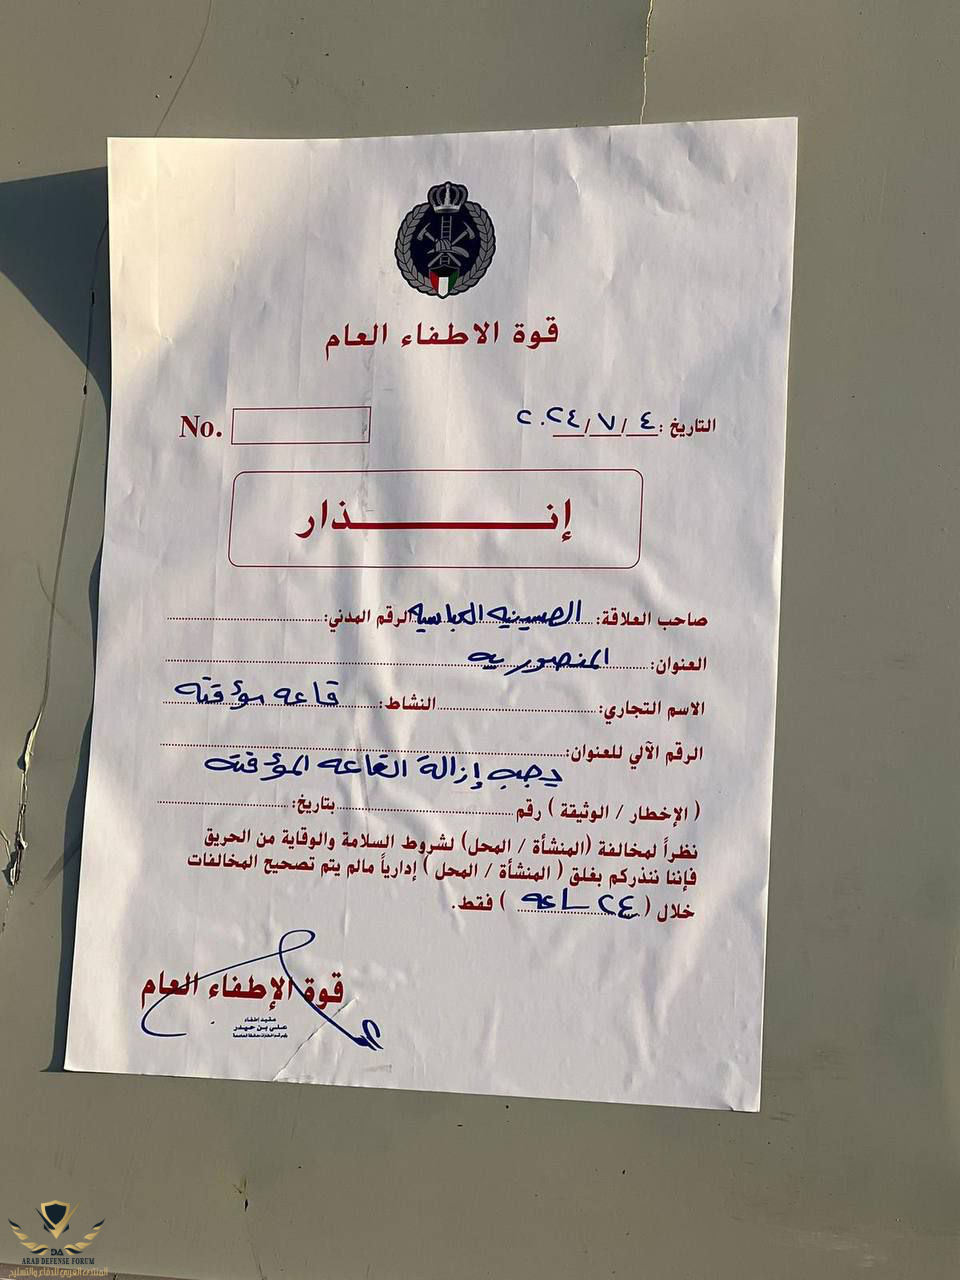 قوة الاطفاء العام
التاريخ: ٤/٧/٢٠٢٤
No.
إنـــــــــــذار
صاحب العلاقة: الحسينيه العباسيه الرقم المدني:
العنوان: المنصوريه
الاسم التجاري: النشاط: قاعه مؤقته
الرقم الآلي للعنوان:
يجب إزالة القاعه المؤقته
( الإخطار / الوثيقة ) رقم بتاريخ:
نظراً لمخالفة (المنشأة / المحل) لشروط السلامة والوقاية من الحريق
فإننا ننذركم بغلق ( المنشأة / المحل ) إدارياً مالم يتم تصحيح المخالفات
خلال ( ٢٤ ساعه ) فقط.
قوة الإطفاء العام
عقيد إطفاء
علي بن حيدر
DA
ARAB DEFENSE FORUM
المنتدى العربي للدفاع والتسليح